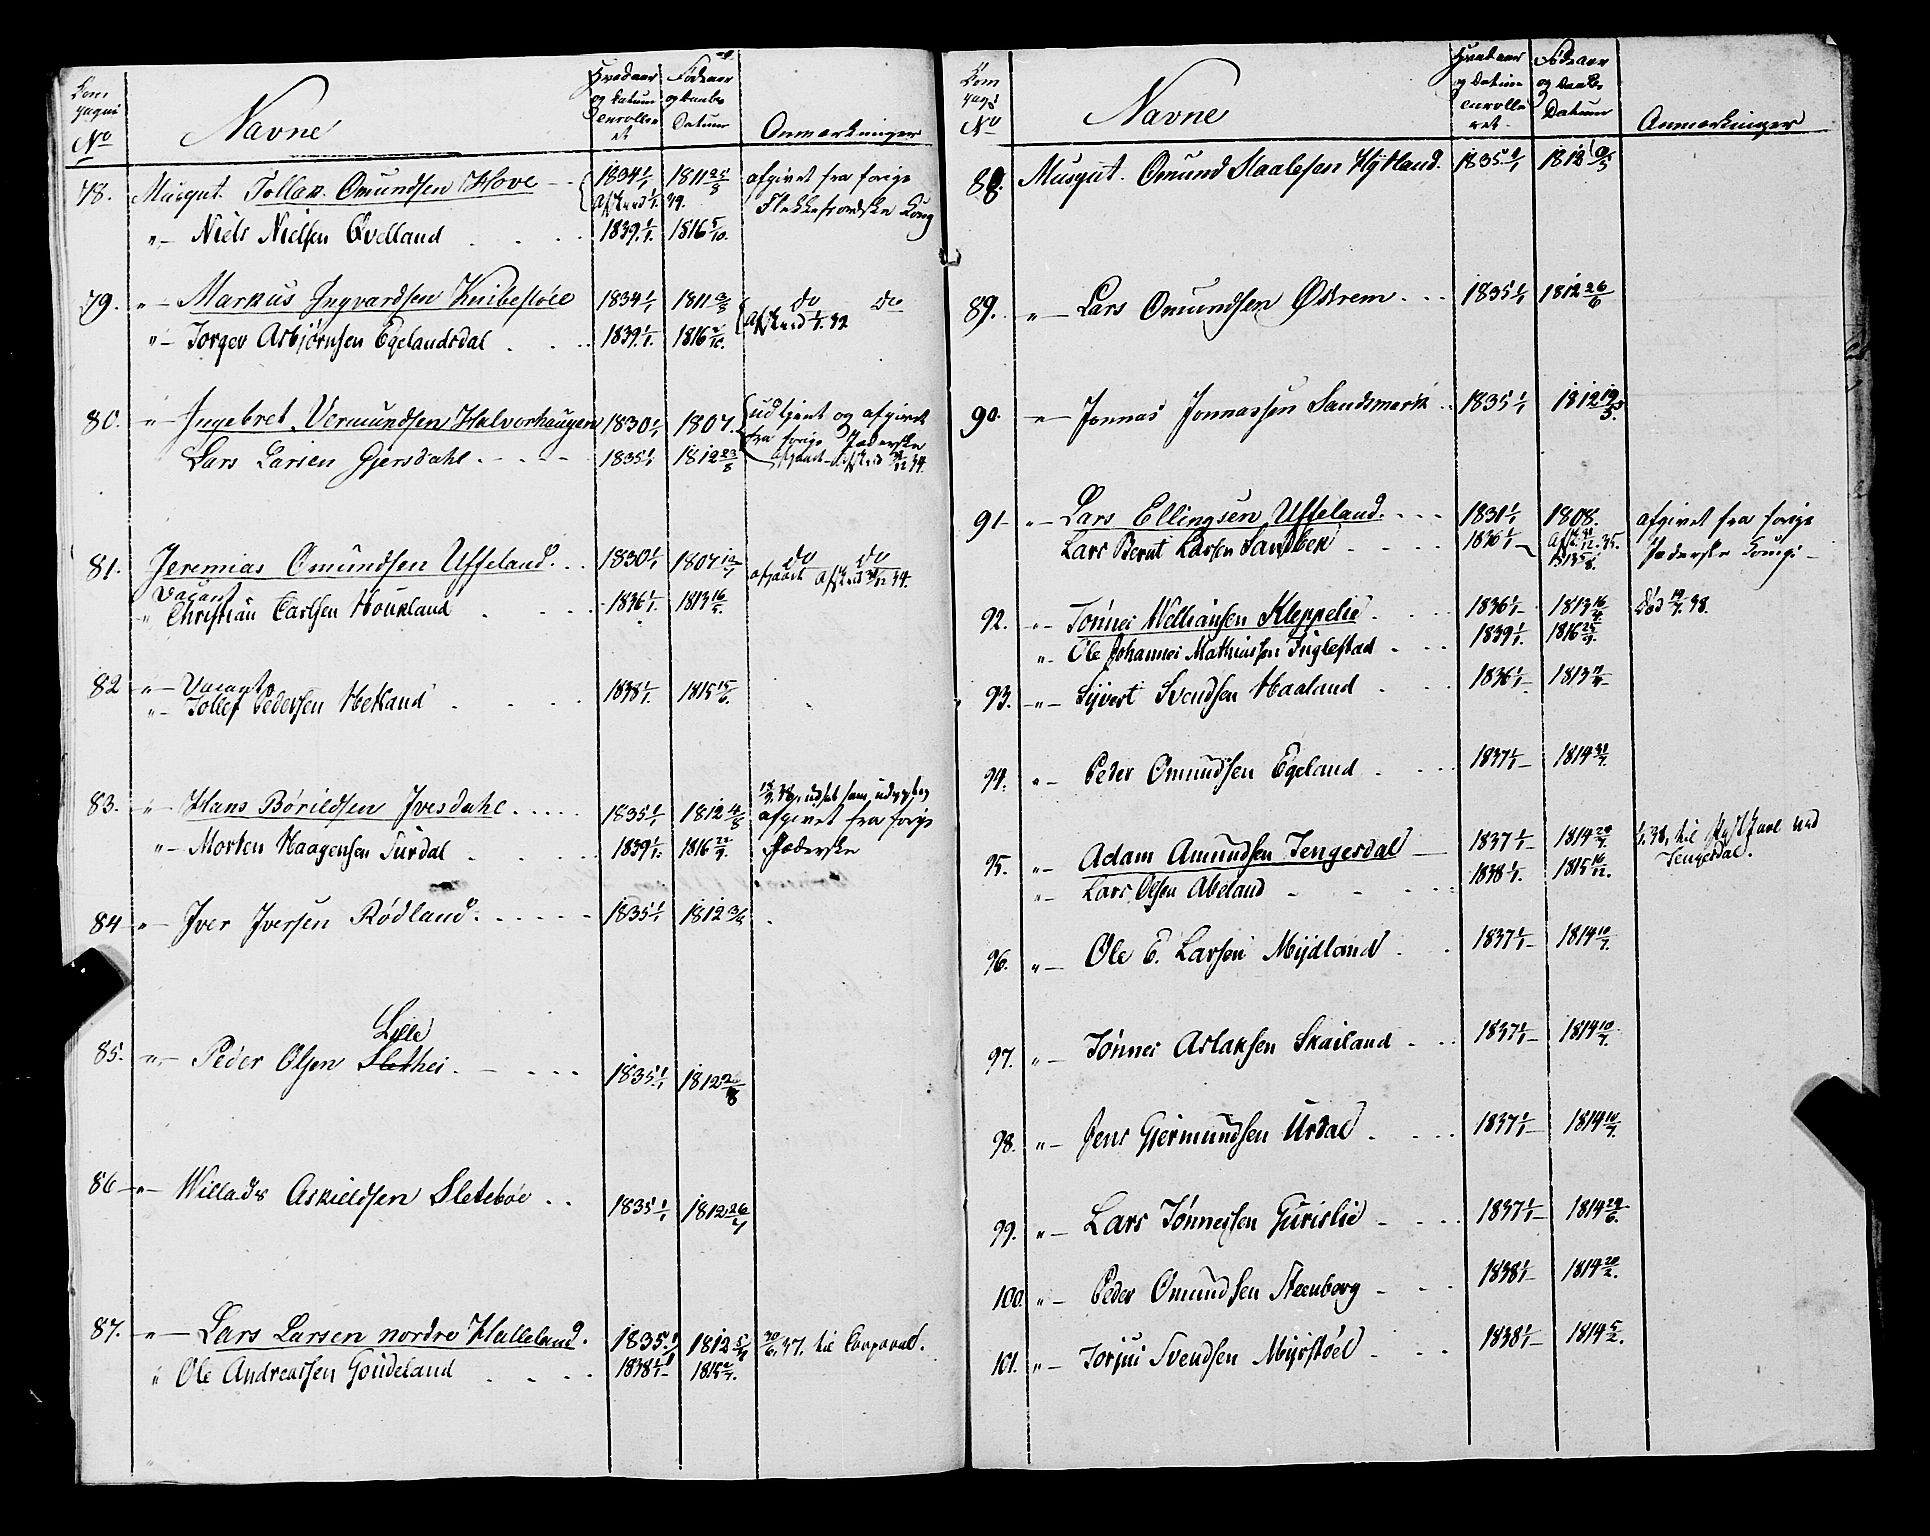 Com
pagni
No
Navne
Hvad aar
og Datum
enrolle
et
Fødeaar
og Daabs
Datum
Anmærkninger
78. Musqut. Tollak Omundsen Hove 1834 1/1 1811 25/8 afgivet fra forige
Afskeed 1/1 39. Flekkefiordske Comp
"- Niels Nielsen Qvelland 1839 1/1. 1816 5/10.
79. "- Markus Ingvardsen Knibestöle 1834 1/1 1811 do do
Afskeed
"- Torger Asbjørnsen Egelandsdal 1839 1/1. 1816
80. "- Ingebret Vermundsen Halvorhaugen 1830 1/1 1807. udtjent og afgivet
fra forige Jæderske
Lars Larsen Gjersdahl 1835 1/1 1812 23/8 Afskeed 34.
81. Jeremias Omundsen Uffeland 1830 1/1 1807 12/7 do do
afgaaet Afskeed 34.
Vacant
" Christian Carlsen Houkland 1836 1/1. 1813 16/
82 "- Vacant
"- Tollef Pedersen Hetland 1838 1/1. 1815 15/6.
83. "- Hans Börildsen Ivesdahl 1835 1/1 1812 14/8 afgivet fra forige
"- Morten Haagensen Turdal 1839 1/1. 1816 22/9. Jæderske
84 "- Iver Iversen Rödland 1835 1/1 1812
Lille
85. "- Peder Olsen Slethei 1835 1/1 1812
86 "- Willads Askieldsen Sletebøe 1835 1/1 1812 26/7
87. "- Lars Larsen nordre Halleland. 1835 1/1 1812 5/ 30/6 37. til Corporal.
" Ole Andreassen Goudeland 1838 1/1 1815
Com
pagi
No
Navne
Hvad aar
og Datum
enrolle
ret
Fødeaar
og Daabs
Datum
Anmærkninger
88. Musqut. Omund Staalesen Hytland. 1835 1/1 1812
89. "- Lars Omundsen Østrem 1835 1/1 1812 26/6
90. "- Jonnas Jonnassen Sandsmark 1835 1/1 1812 19/5
91 "- Lars Ellingsen Uffeland 1831 1/1 1808. afgivet fra forige
Lars Bernt Larsen Sandbek 1836 1/1 35. Jæderske Compi
92. "- Tønnes Villiansen Kleppelie 1836 1/1 1813 16/ død 38.
"- Ole Johannes Mathiassen Puglestad 1839 1/1. 1816
93. "- Sijvert Svendsen Haaland 1836 1/1 1813
94. "- Peder Omundsen Egeland 1837 1/1 1814 31/7.
95. "- Adam Amundsen Tengesdal 1837 1/1 1814 38, til ved
Tengesdal.
"- Lars Olsen Abeland 1838 1/1. 1815 16/12.
96. "- Ole E. Larsen Mydland 1837 1/1 1814 10/7.
97. "- Tønnes Aslaksen Skailand 1837 1/1 1814 10/7.
98. "- Jens Gjermundsen Urdal 1837 1/1 1814 10/7.
99. "- Lars Tønnessen Gurislie 1837 1/1 1814 24/6.
100. "- Peder Omundsen Steenborg 1838 1/1 1814 20/2.
101. "- Torjus Svendsen Myrstöel 1838 1/1 1814 5/2.